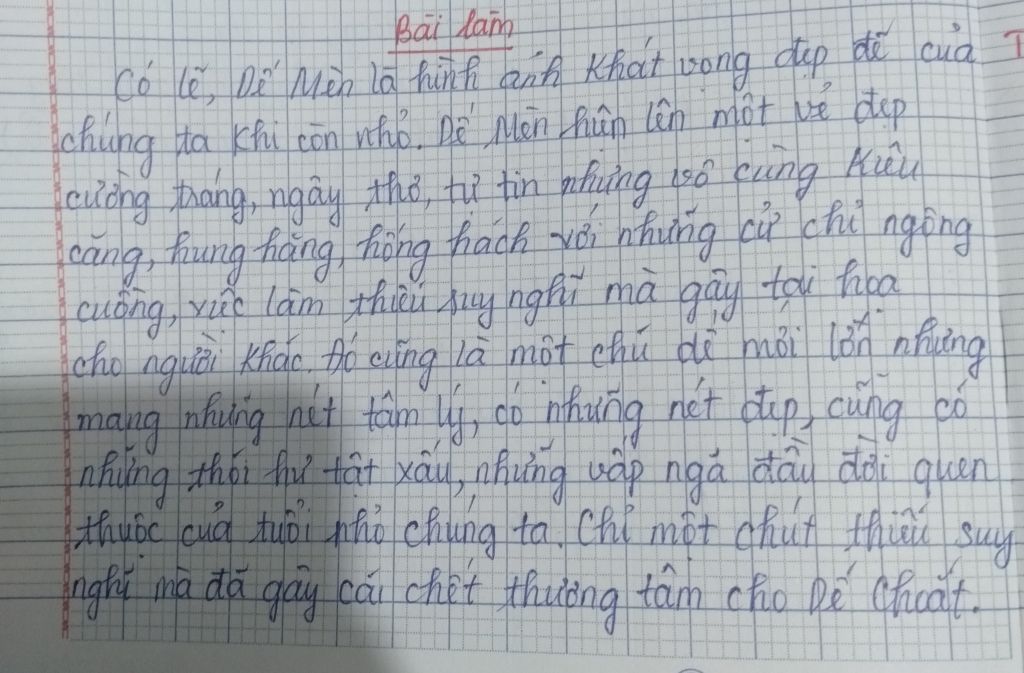 Bài làm
Có lẽ, Dế Mèn là hình ảnh khát vọng đẹp đẽ của
chúng ta khi còn nhỏ. Dế Mèn hiện lên một vẻ đẹp
cường tráng, ngây thơ, tự tin nhưng vô cùng kiêu
căng, hung hăng, hống hách với những cử chỉ ngông
cuồng, việc làm thiếu suy nghĩ mà gây tai họa
cho người khác. Đó cũng là một chú dế mới lớn nhưng
mang những nét tâm lý, có những nét đẹp, cũng có
những thói hư tật xấu, những vấp ngã đầu đời quen
thuộc của tuổi nhỏ chúng ta. Chỉ một chút thiếu suy
nghĩ mà đã gây cái chết thương tâm cho Dế Choắt.